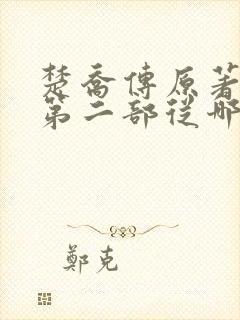 楚喬傳原著
第二部從哪
鄭克